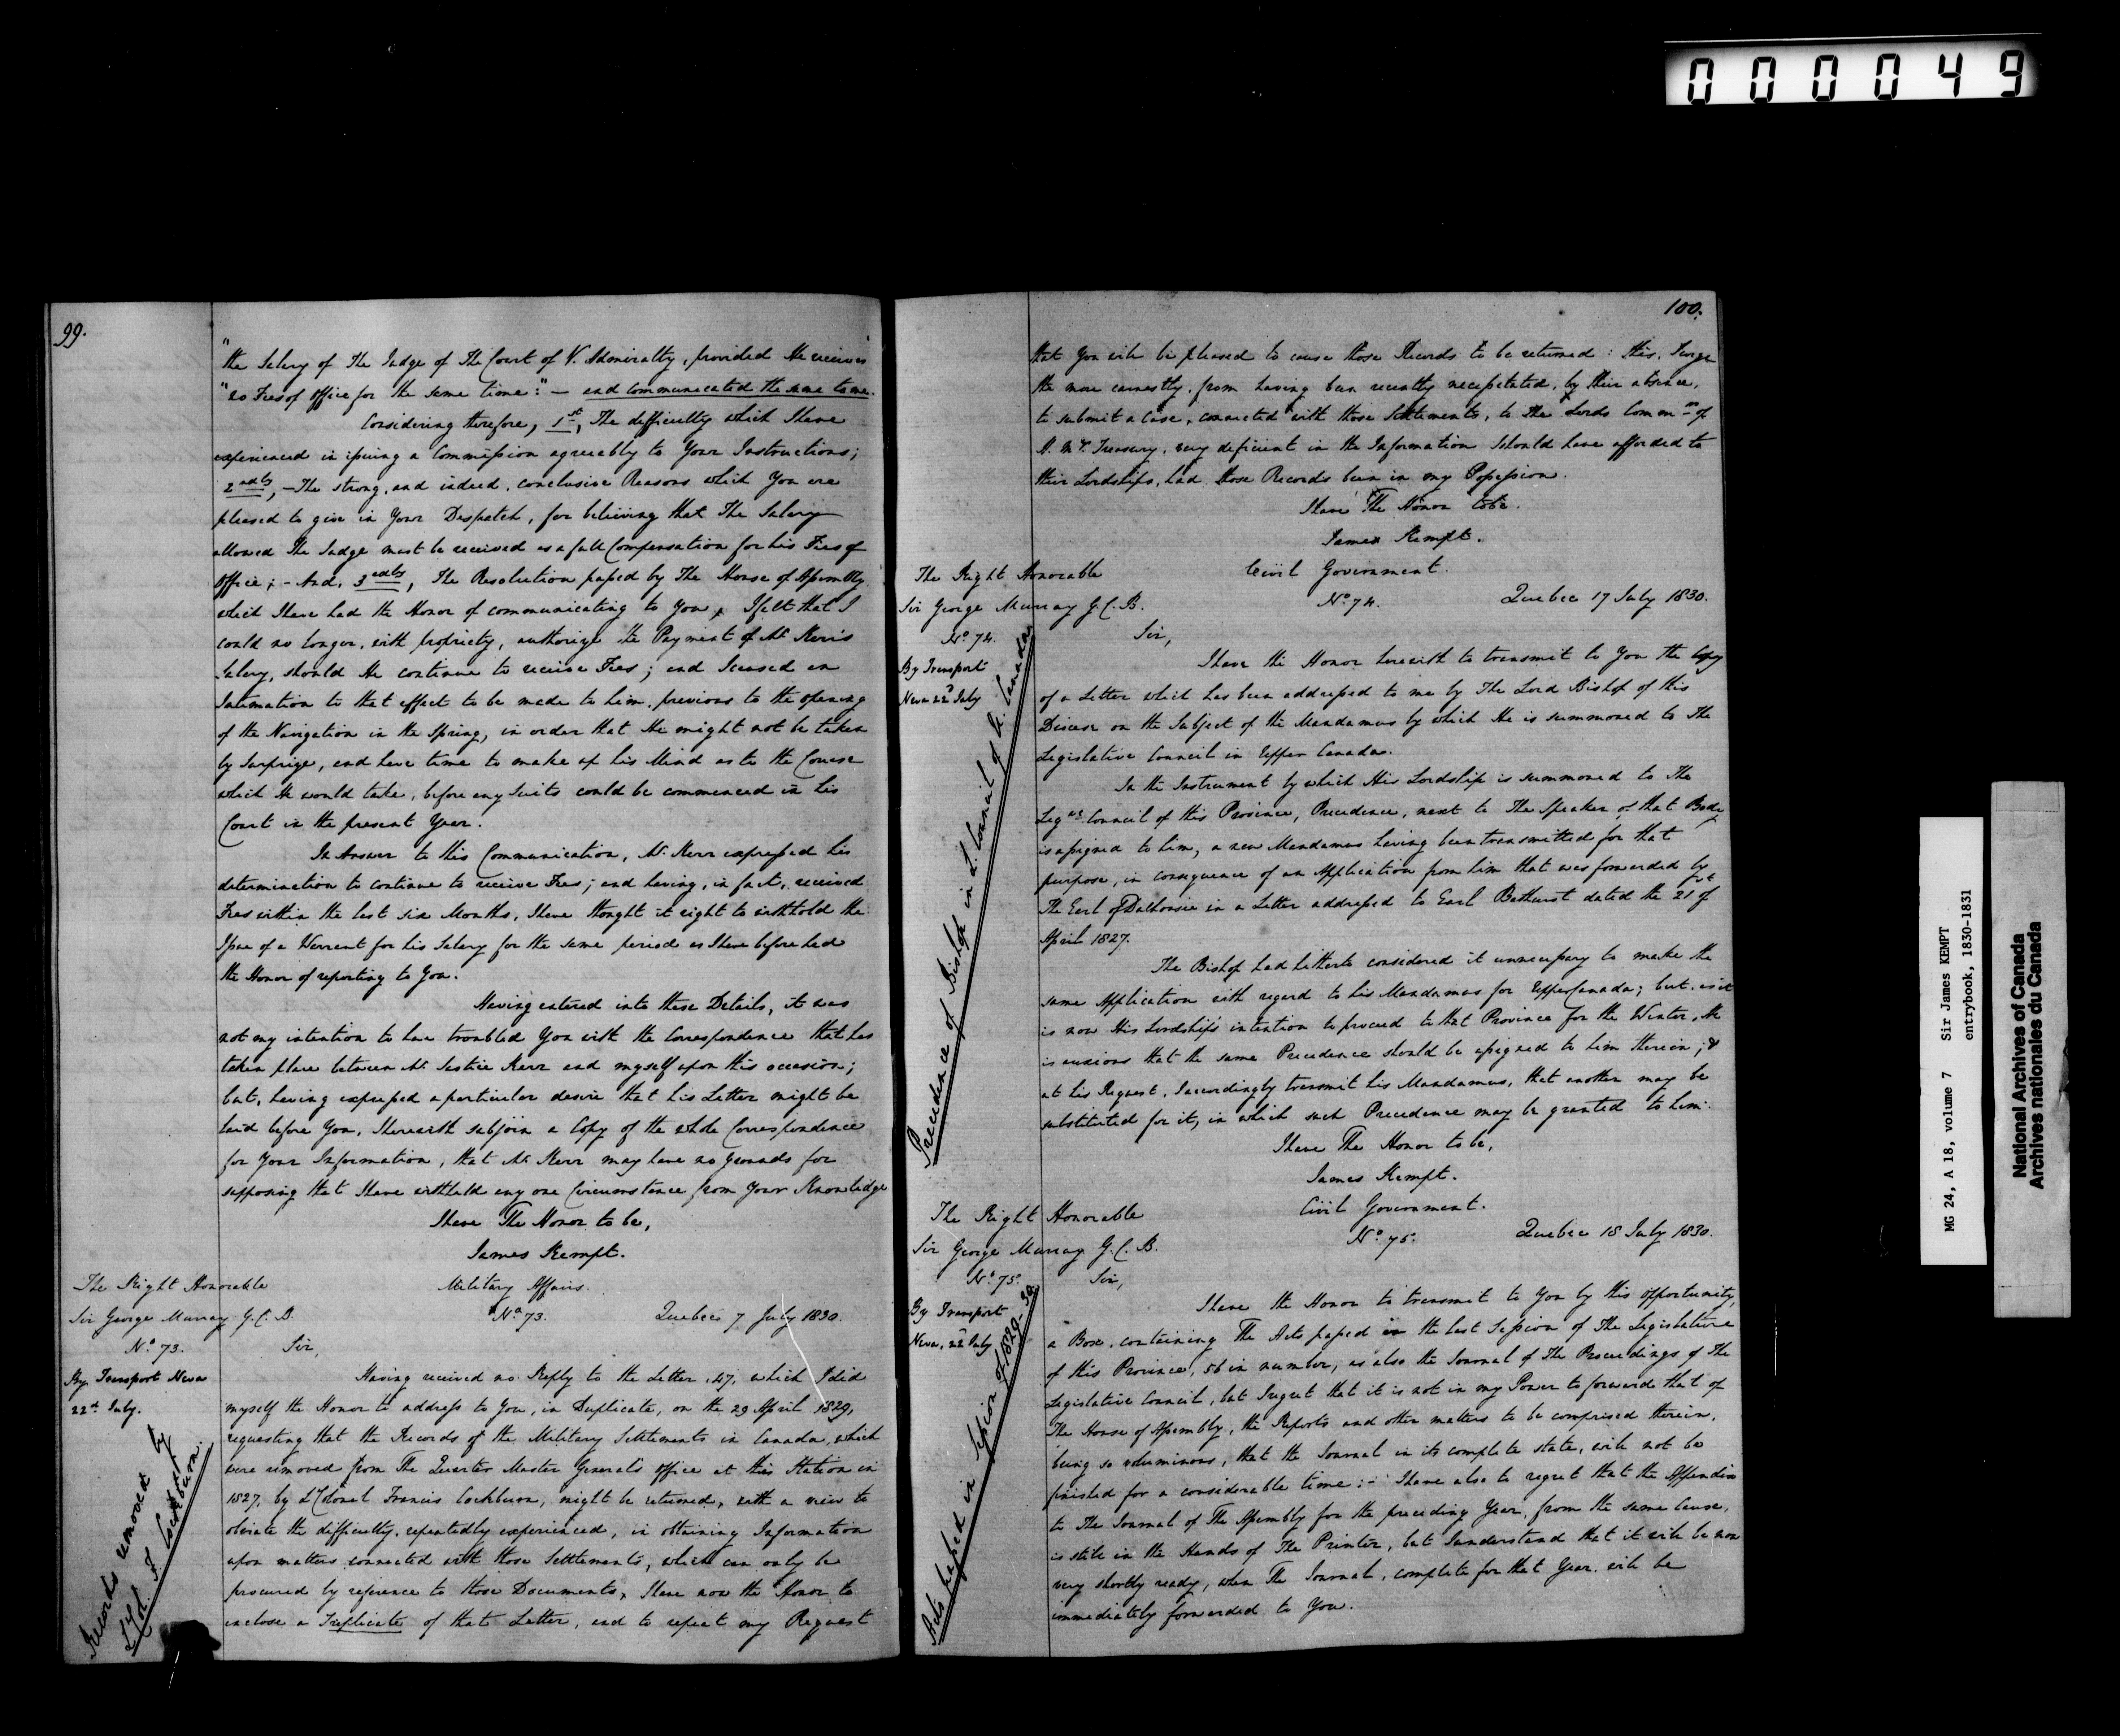 000049
99.
"the Salary of The Judge of The Court of V. Admiralty, provided He receives
"no Fees of Office for the same time:" — and communicated the same to me.
Considering therefore, 1st, The difficulty which I have
experienced in issuing a Commission agreeably to Your Instructions;
2ndly, — The strong, and indeed, conclusive Reasons which You are
pleased to give in Your Despatch, for believing that The Salary
allowed The Judge must be received as a full Compensation for his Fees of
Office; - And, 3rdly, The Resolution passed by The House of Assembly
which I have had the Honor of communicating to You, I felt that I
could no longer, with propriety, authorize the Payment of Mr. Kerr's
Salary, should He continue to receive Fees; and I caused an
Intimation to that effect to be made to him, previous to the opening
of the Navigation in the Spring, in order that He might not be taken
by Surprize, and have time to make up his Mind as to the Course
which He would take, before any Suits could be commenced in his
Court in the present Year.
In Answer to this Communication, Mr. Kerr expressed his
determination to continue to receive Fees; and having, in fact, received
Fees within the last six Months, I have thought it right to withhold the
Issue of a Warrant for his Salary for the same period as I have before had
the Honor of reporting to You.
Having entered into these Details, it was
not my intention to have troubled You with the Correspondence that has
taken place between Mr. Justice Kerr and myself upon this occasion;
but, having expressed a particular desire that his Letter might be
laid before You, I herewith subjoin a Copy of the whole Correspondence
for Your Information, that Mr. Kerr may have no grounds for
supposing that I have withheld any one Circumstance from Your Knowledge
I have The Honor to be,
James Kempt.
The Right Honorable
Sir George Murray G.C.B.
No. 73.
By Transport Neva
22d July.
Records removed by
Lt. Col. F. Cockburn.
Military Affairs.
No. 73. Quebec 7 July 1830.
Sir,
Having received no Reply to the Letter, 47, which I did
myself the Honor to address to You, in Duplicate, on the 29 April 1829,
requesting that the Records of the Military Settlements in Canada, which
were removed from The Quarter Master General's Office at this Station in
1827, by Lt Colonel Francis Cockburn, might be returned, with a view to
obviate the difficulty, repeatedly experienced, in obtaining Information
upon matters connected with those Settlements, which can only be
procured by reference to those Documents, I have now the Honor to
enclose a Triplicate of that Letter, and to repeat my Request
100.
that You will be pleased to cause those Records to be returned: this, I urge
the more earnestly, from having been recently necessitated, by their absence,
to submit a Case, connected with those Settlements, to the Lords Commrs of
H. M's. Treasury, very deficient in the Information I should have afforded to
their Lordships, had those Records been in my Possession.
I have The Honor to be.
James Kempt.
The Right Honorable
Sir George Murray G.C.B.
No. 74.
By Transport
Neva 22d July
Precedence of Bishop in L. Council of U. Canada
Civil Government.
No. 74. Quebec 17 July 1830.
Sir,
I have the Honor herewith to transmit to You the Copy
of a Letter which has been addressed to me by The Lord Bishop of this
Diocese on the Subject of the Mandamus by which He is summoned to The
Legislative Council in Upper Canada.
In the Instrument by which His Lordship is summoned to The
Legve Council of this Province, Precedence, next to The Speaker of that Body
is assigned to him, a new Mandamus having been transmitted for that
purpose, in consequence of an Application from him that was forwarded by
The Earl of Dalhousie in a Letter addressed to Earl Bathurst dated the 21st of
April 1827.
The Bishop had hitherto considered it unnecessary to make the
same Application with regard to his Mandamus for Upper Canada; but, as it
is now His Lordship's intention to proceed to that Province for the Winter, He
is anxious that the same Precedence should be assigned to him therein; &
at his Request, I accordingly transmit his Mandamus, that another may be
substituted for it, in which such Precedence may be granted to him.
I have The Honor to be,
James Kempt.
The Right Honorable
Sir George Murray G.C.B.
No. 75.
By Transport
Neva, 22d July
Acts passed in Session of 1829-30
Civil Government.
No. 75. Quebec 18 July 1830.
Sir,
I have the Honor to transmit to You by this opportunity,
a Box, containing The Acts passed in the last Session of The Legislature
of this Province, 56 in number, as also the Journal of The Proceedings of The
Legislative Council, but I regret that it is not in my Power to forward that of
The House of Assembly, the Reports and other matters to be comprised therein,
being so voluminous, that the Journal in its complete state, will not be
finished for a considerable time: - I have also to regret that the Appendix
to The Journal of The Assembly for the preceding Year, from the same Cause,
is still in the Hands of The Printer, but I understand that it will be now
very shortly ready, when The Journal, complete for that Year, will be
immediately forwarded to You.
MG 24, A 18, volume 7 Sir James KEMPT
entrybook, 1830-1831
National Archives of Canada
Archives nationales du Canada